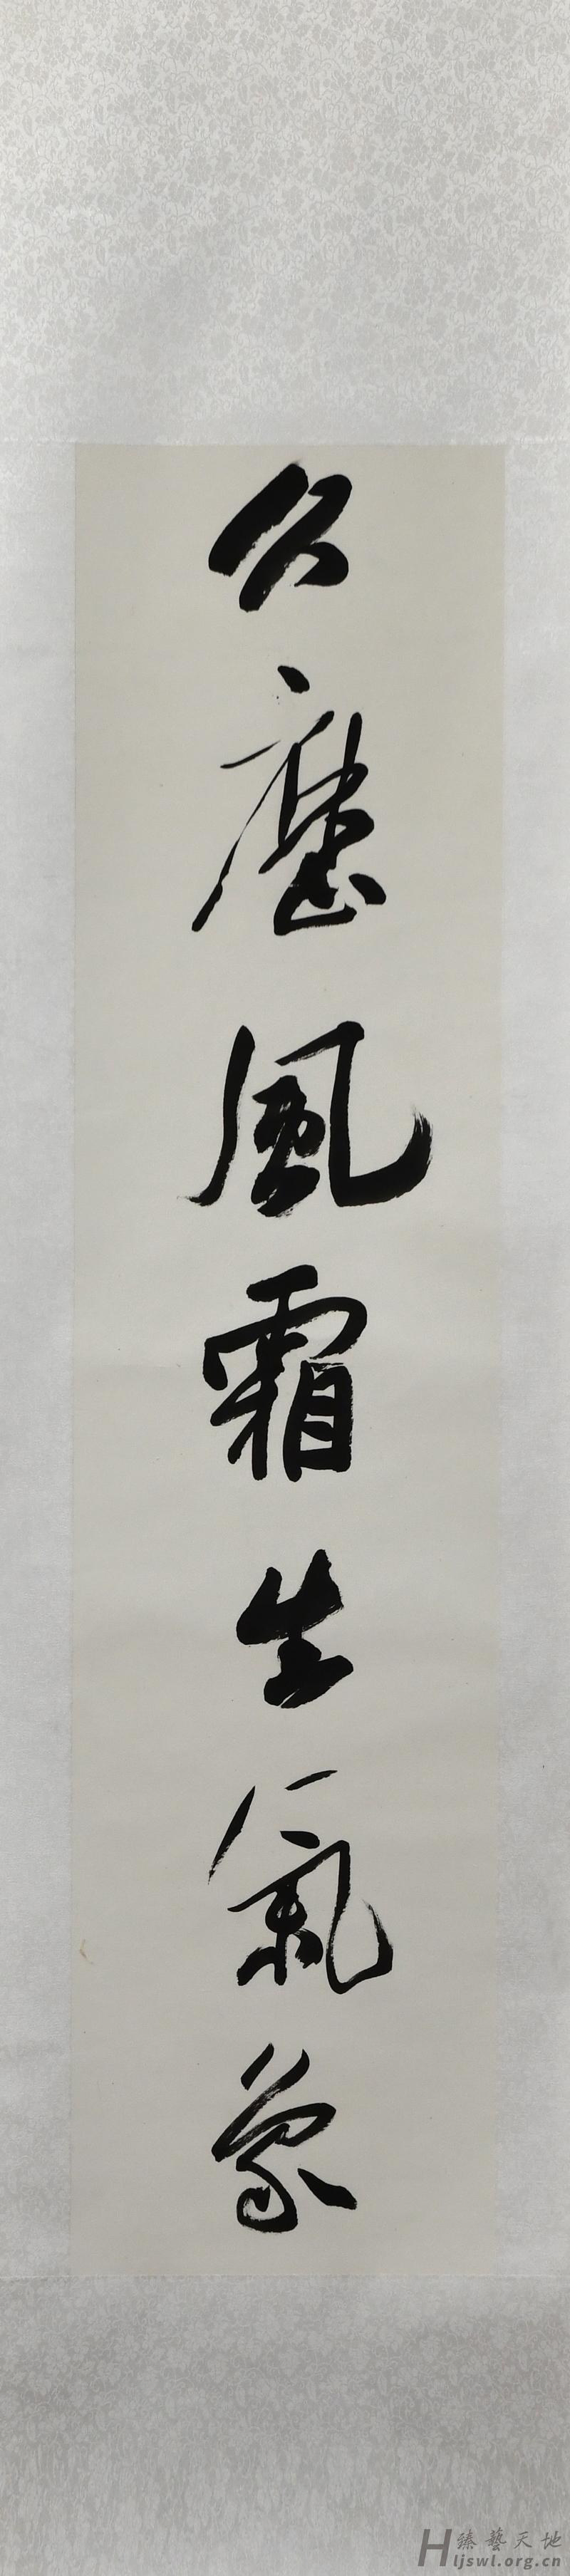 久歷風霜生氣象
H臻藝天地
ljswl.org.cn